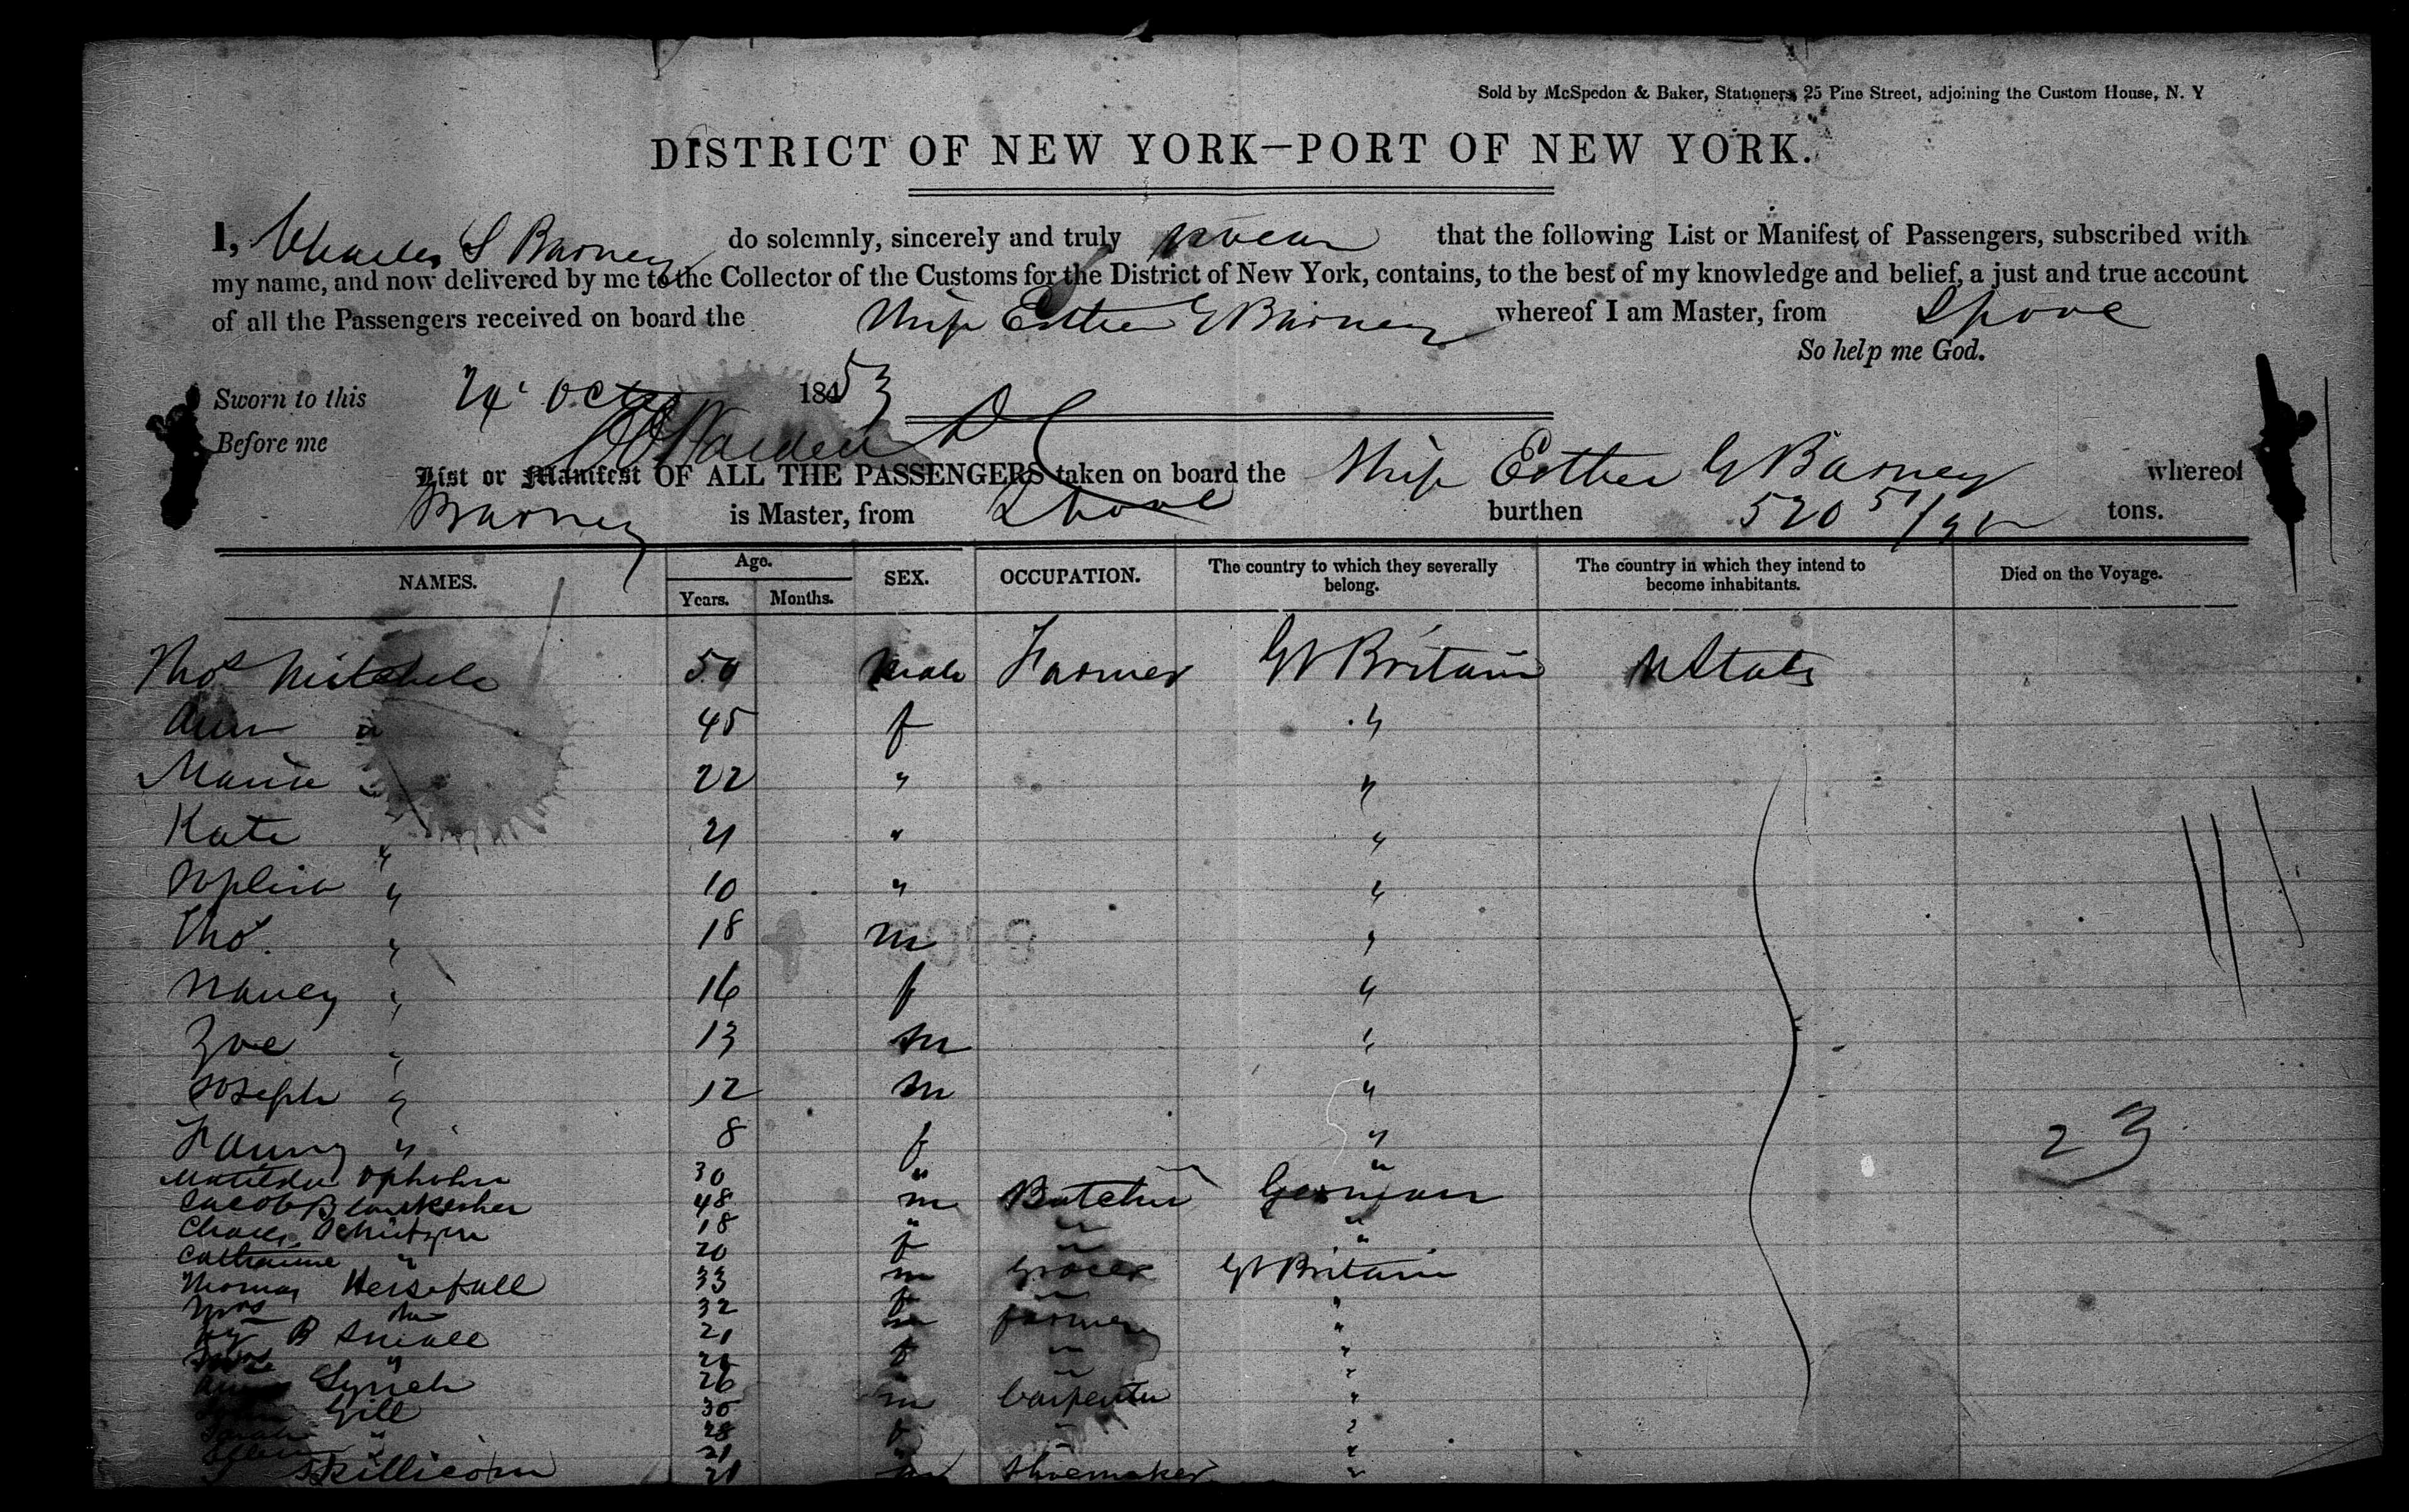 Sold by McSpedon & Baker, Stationers, 25 Pine Street, adjoining the Custom House, N. Y
DISTRICT OF NEW YORK—PORT OF NEW YORK.
I, Charles S Barney do solemnly, sincerely and truly swear that the following List or Manifest of Passengers, subscribed with
my name, and now delivered by me to the Collector of the Customs for the District of New York, contains, to the best of my knowledge and belief, a just and true account
of all the Passengers received on board the Ship Esther G Barney whereof I am Master, from Lpool
So help me God.
Sworn to this 24 Octr 1853
Before me
List or Manifest OF ALL THE PASSENGERS taken on board the Ship Esther G Barney whereof
Barney is Master, from Lpool burthen 520 51/95 tons.
NAMES. Age. Years. Months. SEX. OCCUPATION. The country to which they severally belong. The country in which they intend to become inhabitants. Died on the Voyage.
Thos Mitchele 50 Male Farmer Gt Britain U States
Ann " 45 f "
Maria " 22 " "
Kate " 21 " "
Sophia " 10 " "
Tho. " 18 m "
Nancy " 16 f "
Zoe " 13 m "
Joseph " 12 m "
Fanny " 8 f "
23
Matilda 30 " "
Jacob 48 m Butcher German
Charles 18 " " "
Catharine " 20 f " "
Thomas Hersefall 33 m Grocer Gt Britain
Mrs do 32 f " "
B Smale 21 m farmer "
" f " "
Lynch 26 "
Gill 30 m Carpenter "
Sarah " 28 f "
Ellen " 21 " "
Skillicorn 21 m Shoemaker "